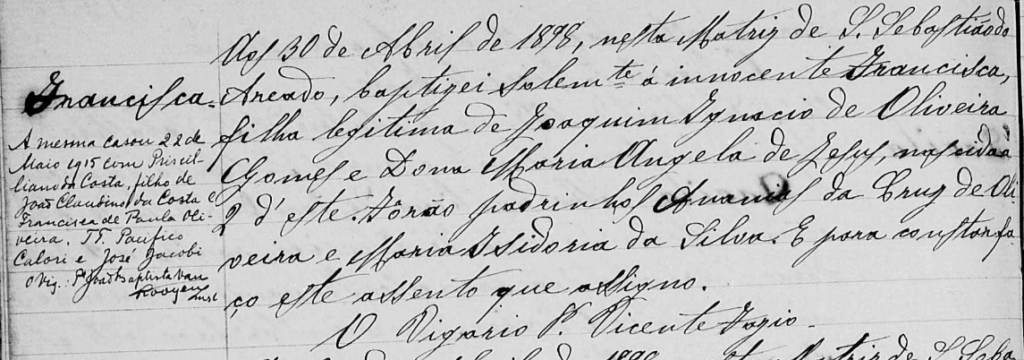 Francisca.
A mesma casou 22 de
Maio 1915 com Priscil-
liano da Costa, filho de
João Claudino da Costa e
Francisca de Paula Oli-
veira. TT. Pacifico
Calori e José Jacobi
O Vig.: P. João Baptista van
Rooyen
Aos 30 de Abril de 1898, nesta Matriz de S. Sebastião do
Areado, baptizei solemte. á innocente Francisca,
filha legitima de Joaquim Ignacio de Oliveira
Gomes e Dona Maria Angela de Jesus, nascida a
2 d'este. Fôrão padrinhos Ananias da Cruz de Oli
veira e Maria Isidoria da Silva. E para constar fa
ço este assento que assigno.
O Vigario P. Vicente
de 1898, nesta Matriz de S. Seba